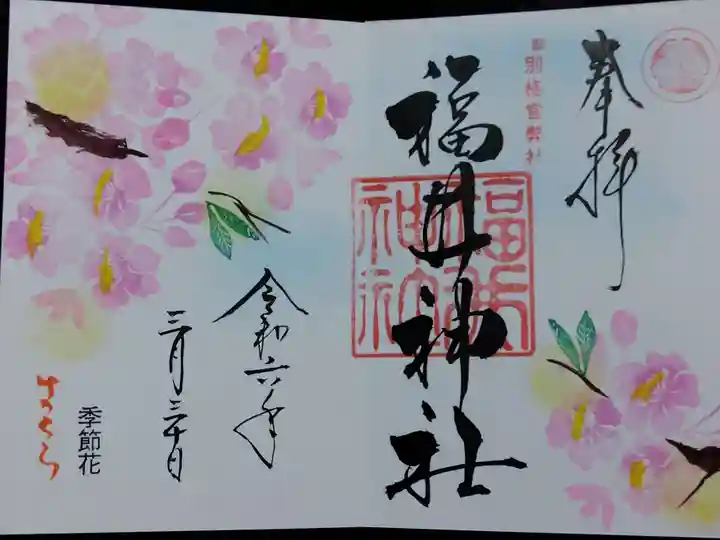 奉拝
旧別格官幣社
福井神社
福井神社
令和六年
三月三十日
季節花
さくら